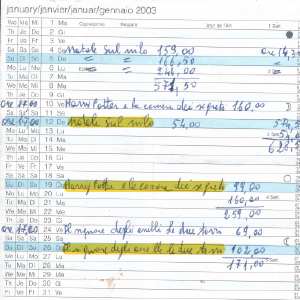 january/janvier/januar/gennaio 2003
We Me Mi 1 Me
Th Je Do 2 Gi
Fr Ve Fr 3 Ve
Sa Sa Sa 4 Sa Natale sul Nilo 159,00
Su Di So 5 Do 166,50
Mo Lu Mo 6 Lu 246,00
Tu Ma Di 7 Ma 571,50
We Me Mi 8 Me
Th Je Do 9 Gi
10 Ve Harry Potter e la camera dei segreti 160,00
11 Sa
12 Do Natale sul Nilo 54,00
Mo Lu Mo 13 Lu
Tu Ma Di 14 Ma
We Me Mi 15 Me
Th Je Do 16 Gi
Fr Ve Fr 17 Ve
Sa Sa Sa 18 Sa
Su Di So 19 Do Harry Potter e la camera dei segreti 99,00
Mo Lu Mo 20 Lu 160,00
Tu Ma Di 21 Ma 259,00
We Me Mi 22 Me
Th Je Do 23 Gi
24 Ve Il signore degli anelli le due torri 69,00
Sa Sa Sa 25 Sa
26 Do Il signore degli anelli le due torri 102,00
Mo Lu Mo 27 Lu 171,00
Tu Ma Di 28 Ma
We Me Mi 29 Me
Th Je Do 30 Gi
Fr Ve Fr 31 Ve